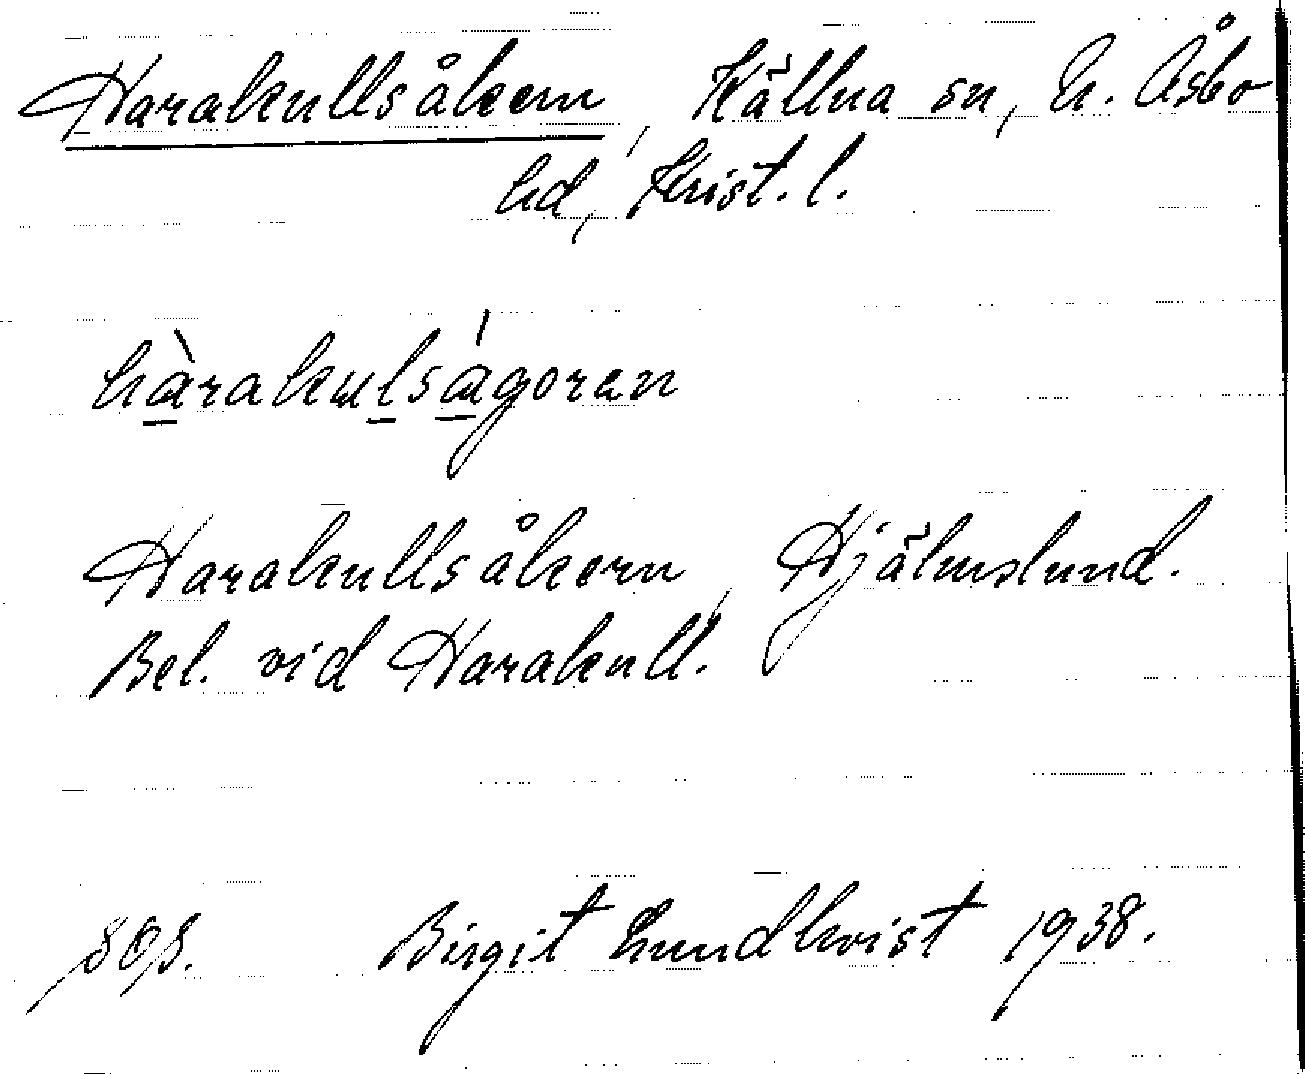 Harakullsåkern, Källna sn, N. Åsbo
hd, Krist. l.
hàrakulságoren
Harakullsåkern, Hjälmslund.
Bel. vid Harakull.
Birgit Lundkvist 1938.